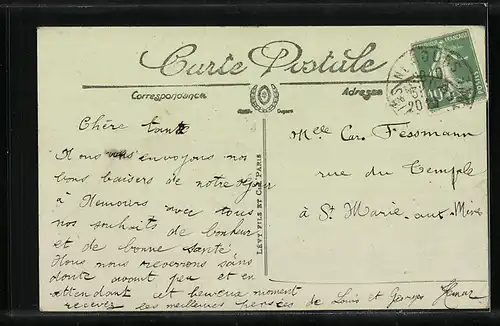 Carte Postale
Correspondance
Adresse
Chère tante
Nous vous envoyons nos
bons baisers de notre séjour
à avec tous
nos souhaits de bonheur
et de bonne santé
Nous nous reverrons sans
doute avant peu et en
attendant cet heureux moment
recevez les meilleures pensées de Louis et Georges
LÉVY FILS ET Cie PARIS
Mlle Car. Fessmann
rue du Temple
à St Marie aux Mines